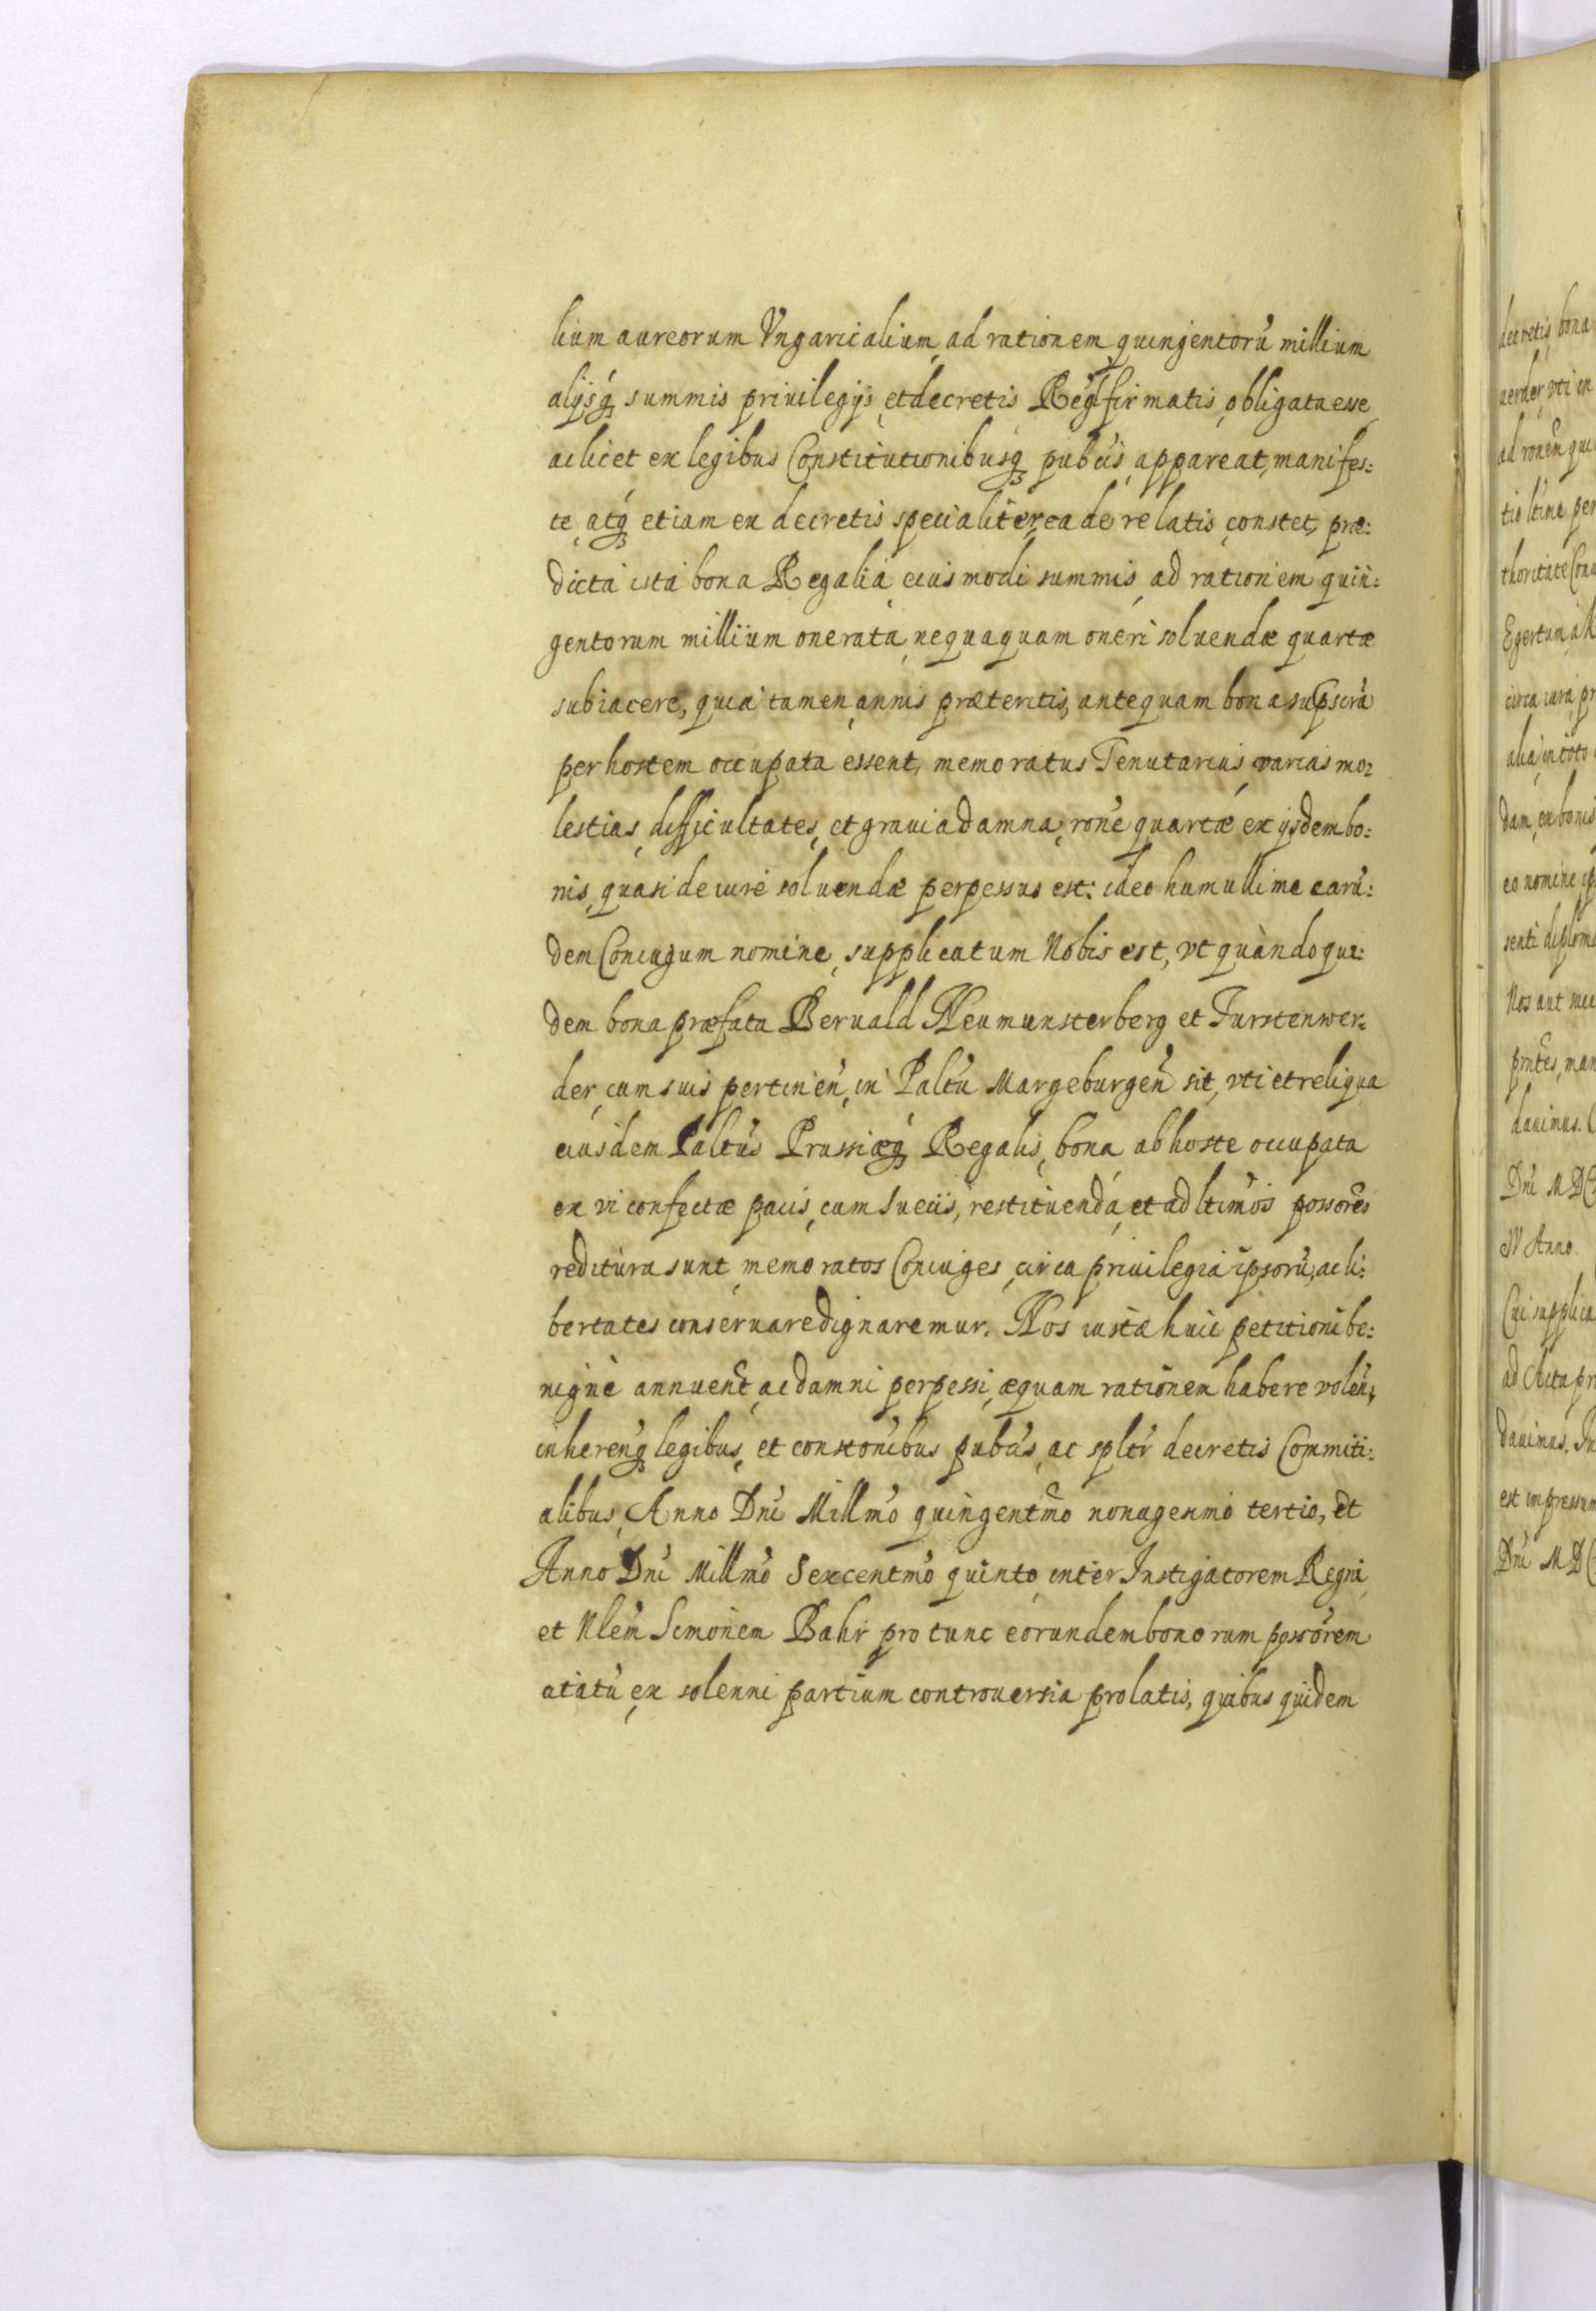 lium aureorum Vngaricalium, ad rationem quingentorũ millium
alijsq; summis priuilegijs, et decretis Regijs firmatis, obligata esse,
ac licet ex legibus Constitutionibusq; publcis, appareat, manifes:
te, atq; etiam ex decretis specialiter ea de re latis, constet, præ:
dicta ista bona Regalia, eiusmodi summis, ad rationem quin:
gentorum millium onerata, nequaquam oneri soluendæ quartæ
subiacere, quia tamen, annis præteritis, antequam bona supscra
per hostem occupata essent, memoratus Tenutarius, varias mo:
lestias, difficultates, et grauia damna, rone quartæ ex ijsdem bo:
nis, quasi de iure soluendæ perpessus est: ideo humullime earũ:
dem Coniugum nomine, supplicatum Nobis est, vt quandoqui:
dem bona præfata Beruald Neumunsterberg et Furstenwer:
der, cum suis pertineñ, in Paltũ Margeburgeñ sit, vti et reliqua
eiusdem Paltũs Prussiæq; Regalis, bona ab hoste occupata
ex vi confectæ pacis, cum Suecis, restituenda, et ad ltimos possores
reditura sunt, memoratos Coniuges, circa priuilegia ipsorũ, ac li:
bertates conseruare dignaremur. Nos iustæ huic petitioni be:
nigne annuent, ac damni perpessi, æquam rationem habere volen,
inhereng legibus, et constonibus publcs, ac spltr decretis Commiti:
alibus, Anno Dni Millmo quingentmo nonagesimo tertio, et
Anno Dni Millmo Sexcentmo quinto, inter Instigatorem Regni
et Nlem Simonem Bahr pro tunc eorundem bonorum possorem
atatũ, ex solenni partium controuersia prolatis, quibus quidem